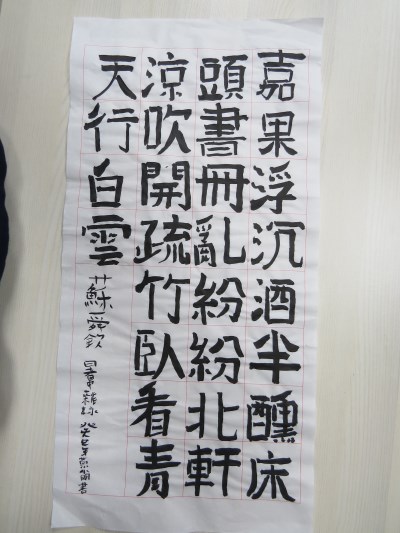 嘉果浮沉酒半醺床
頭書冊亂紛紛北軒
涼吹開疏竹臥看青
天行白雲
蘇舜欽